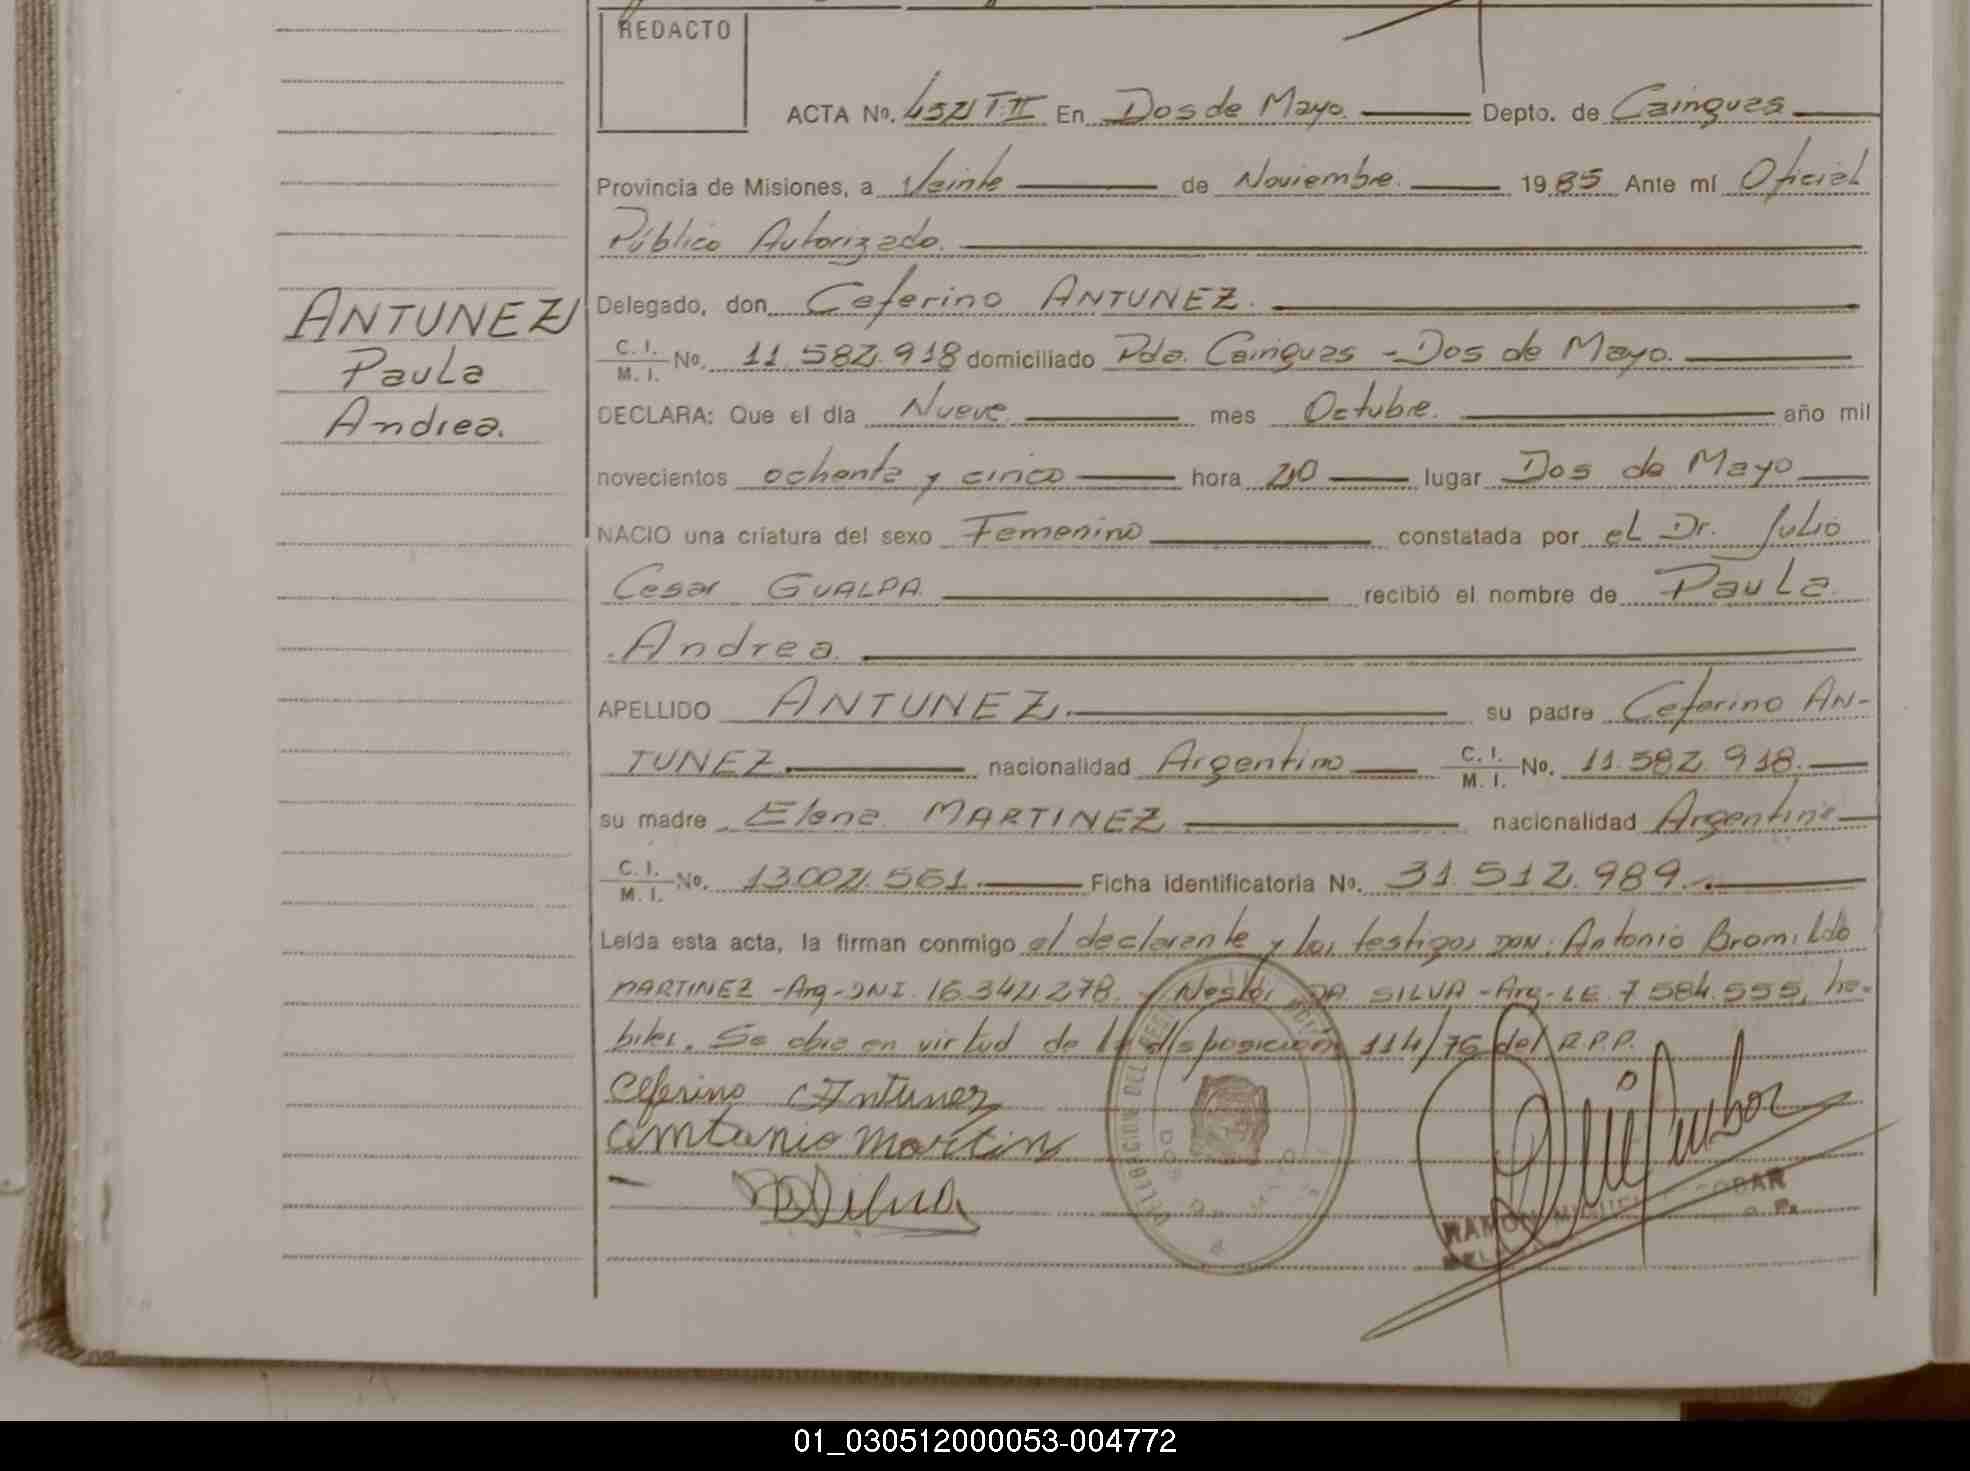 REDACTO
ACTA No. 452 T.II En Dos de Mayo. Depto. de Cainguas
Provincia de Misiones, a Veinte de Noviembre. 1985 Ante mí Oficial
Público Autorizado.
Delegado, don Ceferino ANTUNEZ.
C. I. / M. I. No. 11.582.918 domiciliado Pda. Cainguas - Dos de Mayo.
ANTUNEZ
Paula
Andrea.
DECLARA: Que el día Nueve mes Octubre. año mil
novecientos ochenta y cinco hora 20 lugar Dos de Mayo
NACIO una criatura del sexo Femenino constatada por el Dr. Julio
Cesar GUALPA. recibió el nombre de Paula
Andrea.
APELLIDO ANTUNEZ. su padre Ceferino AN-
TUNEZ. nacionalidad Argentino C. I. / M. I. No. 11.582.918.
su madre Elena MARTINEZ nacionalidad Argentina
C. I. / M. I. No. 13.002.561. Ficha identificatoria No. 31.512.989.
Leída esta acta, la firman conmigo el declarante y los testigos DON: Antonio Bromildo
MARTINEZ - Arg - DNI. 16.342.278. - Nestor DA SILVA - Arg - LE. 7.584.555, há-
biles. Se obra en virtud de la disposición 114/76 del R.P.P.
Ceferino Antunez
Antunio Martin
DaSilva
DELEGACION DEL REGISTRO
DOS DE MAYO
RAMON MIGUEL ESCOBAR
01_030512000053-004772